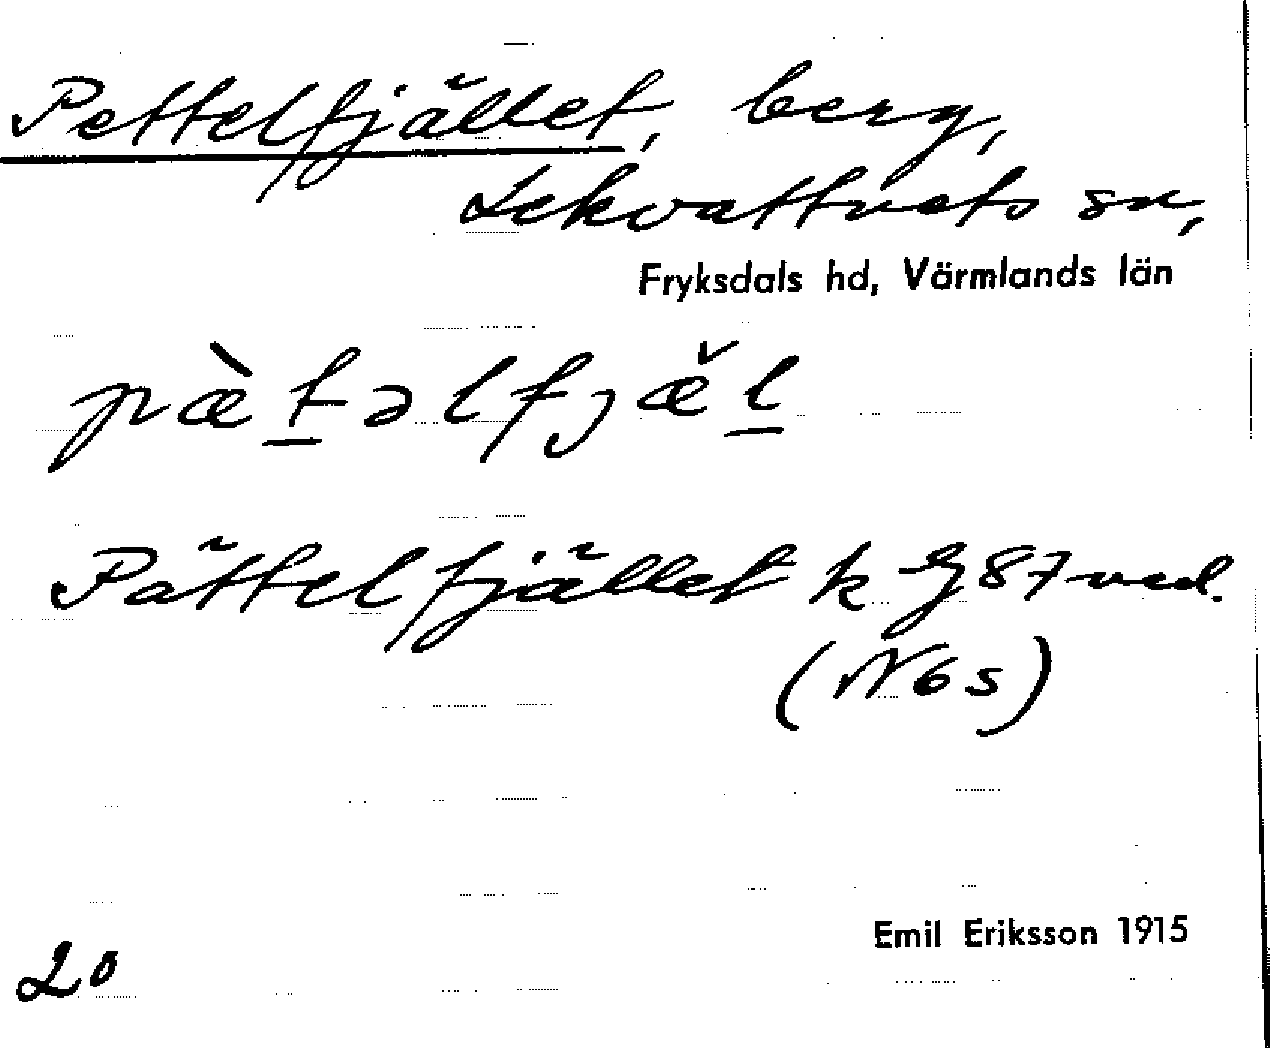 Pettelfjället, berg,
Lekvattnets sn,
Fryksdals hd, Värmlands län
pæ̀t̲əlfjæ̌l̲
Pättelfjället k G87 ved.
(N6s)
Emil Eriksson 1915
20